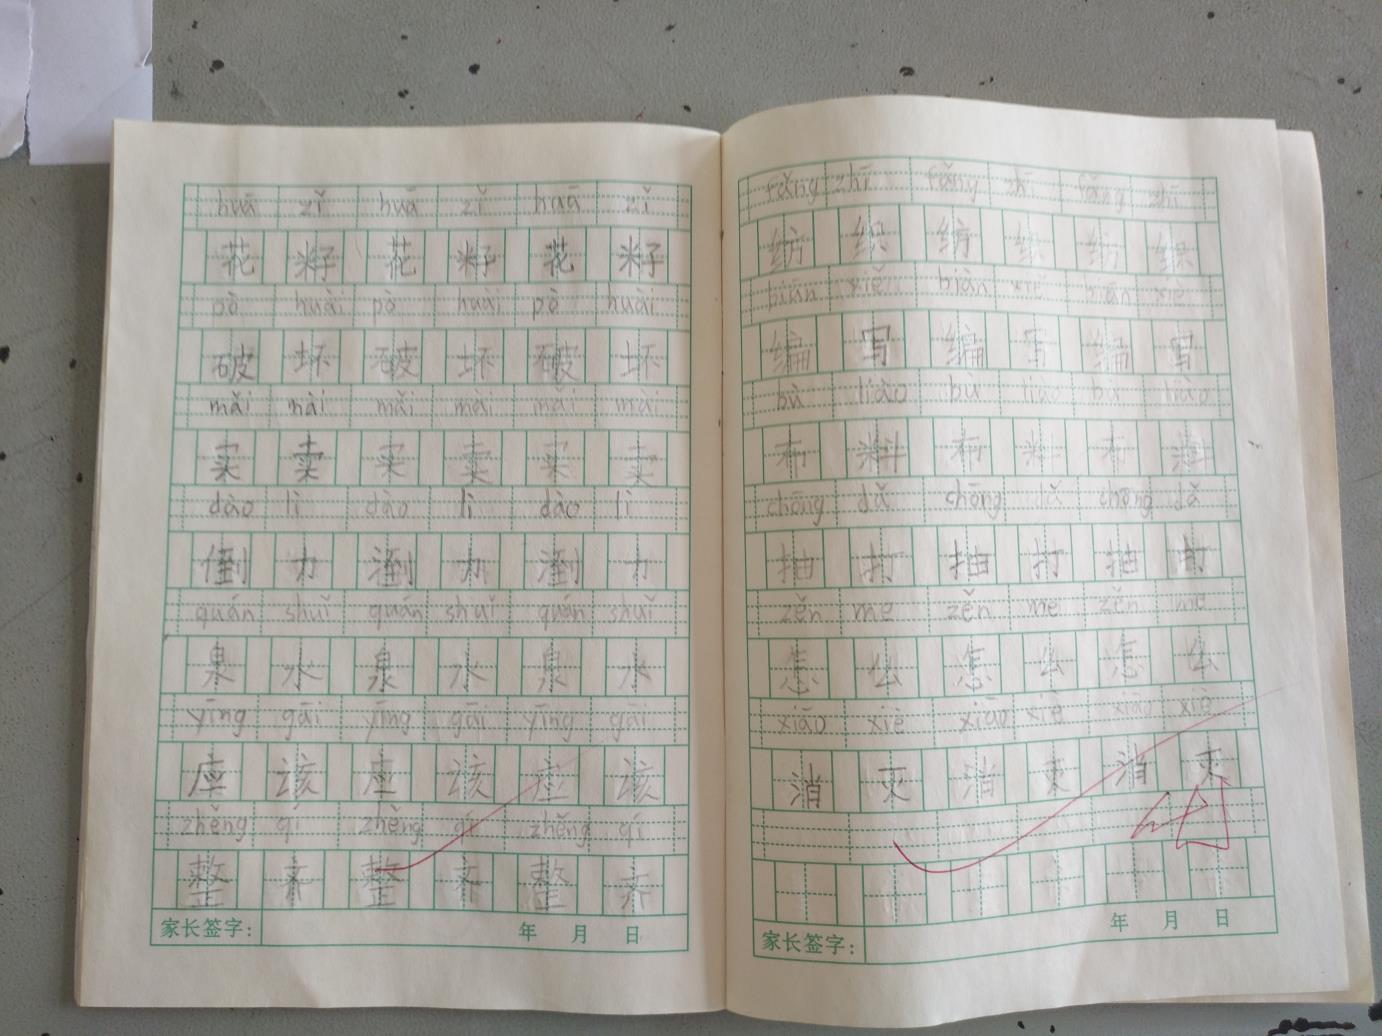 huā zǐ huā zǐ huā zǐ
花 籽 花 籽 花 籽
pò huài pò huài pò huài
破 坏 破 坏 破 坏
mǎi mài mǎi mài mǎi mài
买 卖 买 卖 买 卖
dào lì dào lì dào lì
力 力 力
quán shuǐ quán shuǐ quán shuǐ
泉 水 泉 水 泉 水
yīng gāi yīng gāi yīng gāi
该 该 该
zhěng qí zhěng qí zhěng qí
整 齐 整 齐 整 齐
家长签字: 年 月 日
fǎng zhī fǎng zhī fǎng zhī
纺 织 纺 织 纺 织
biān xiě biān xiě biān xiě
编 写 编 写 编 写
bù liào bù liào bù liào
布 料 布 料 布 料
chōng dǎ chōng dǎ chōng dǎ
抽 打 抽 打 抽 打
zěn me zěn me zěn me
怎 么 怎 么 怎 么
xiāo xiè xiāo xiè xiāo xiè
消 灭 消 消
家长签字: 年 月 日